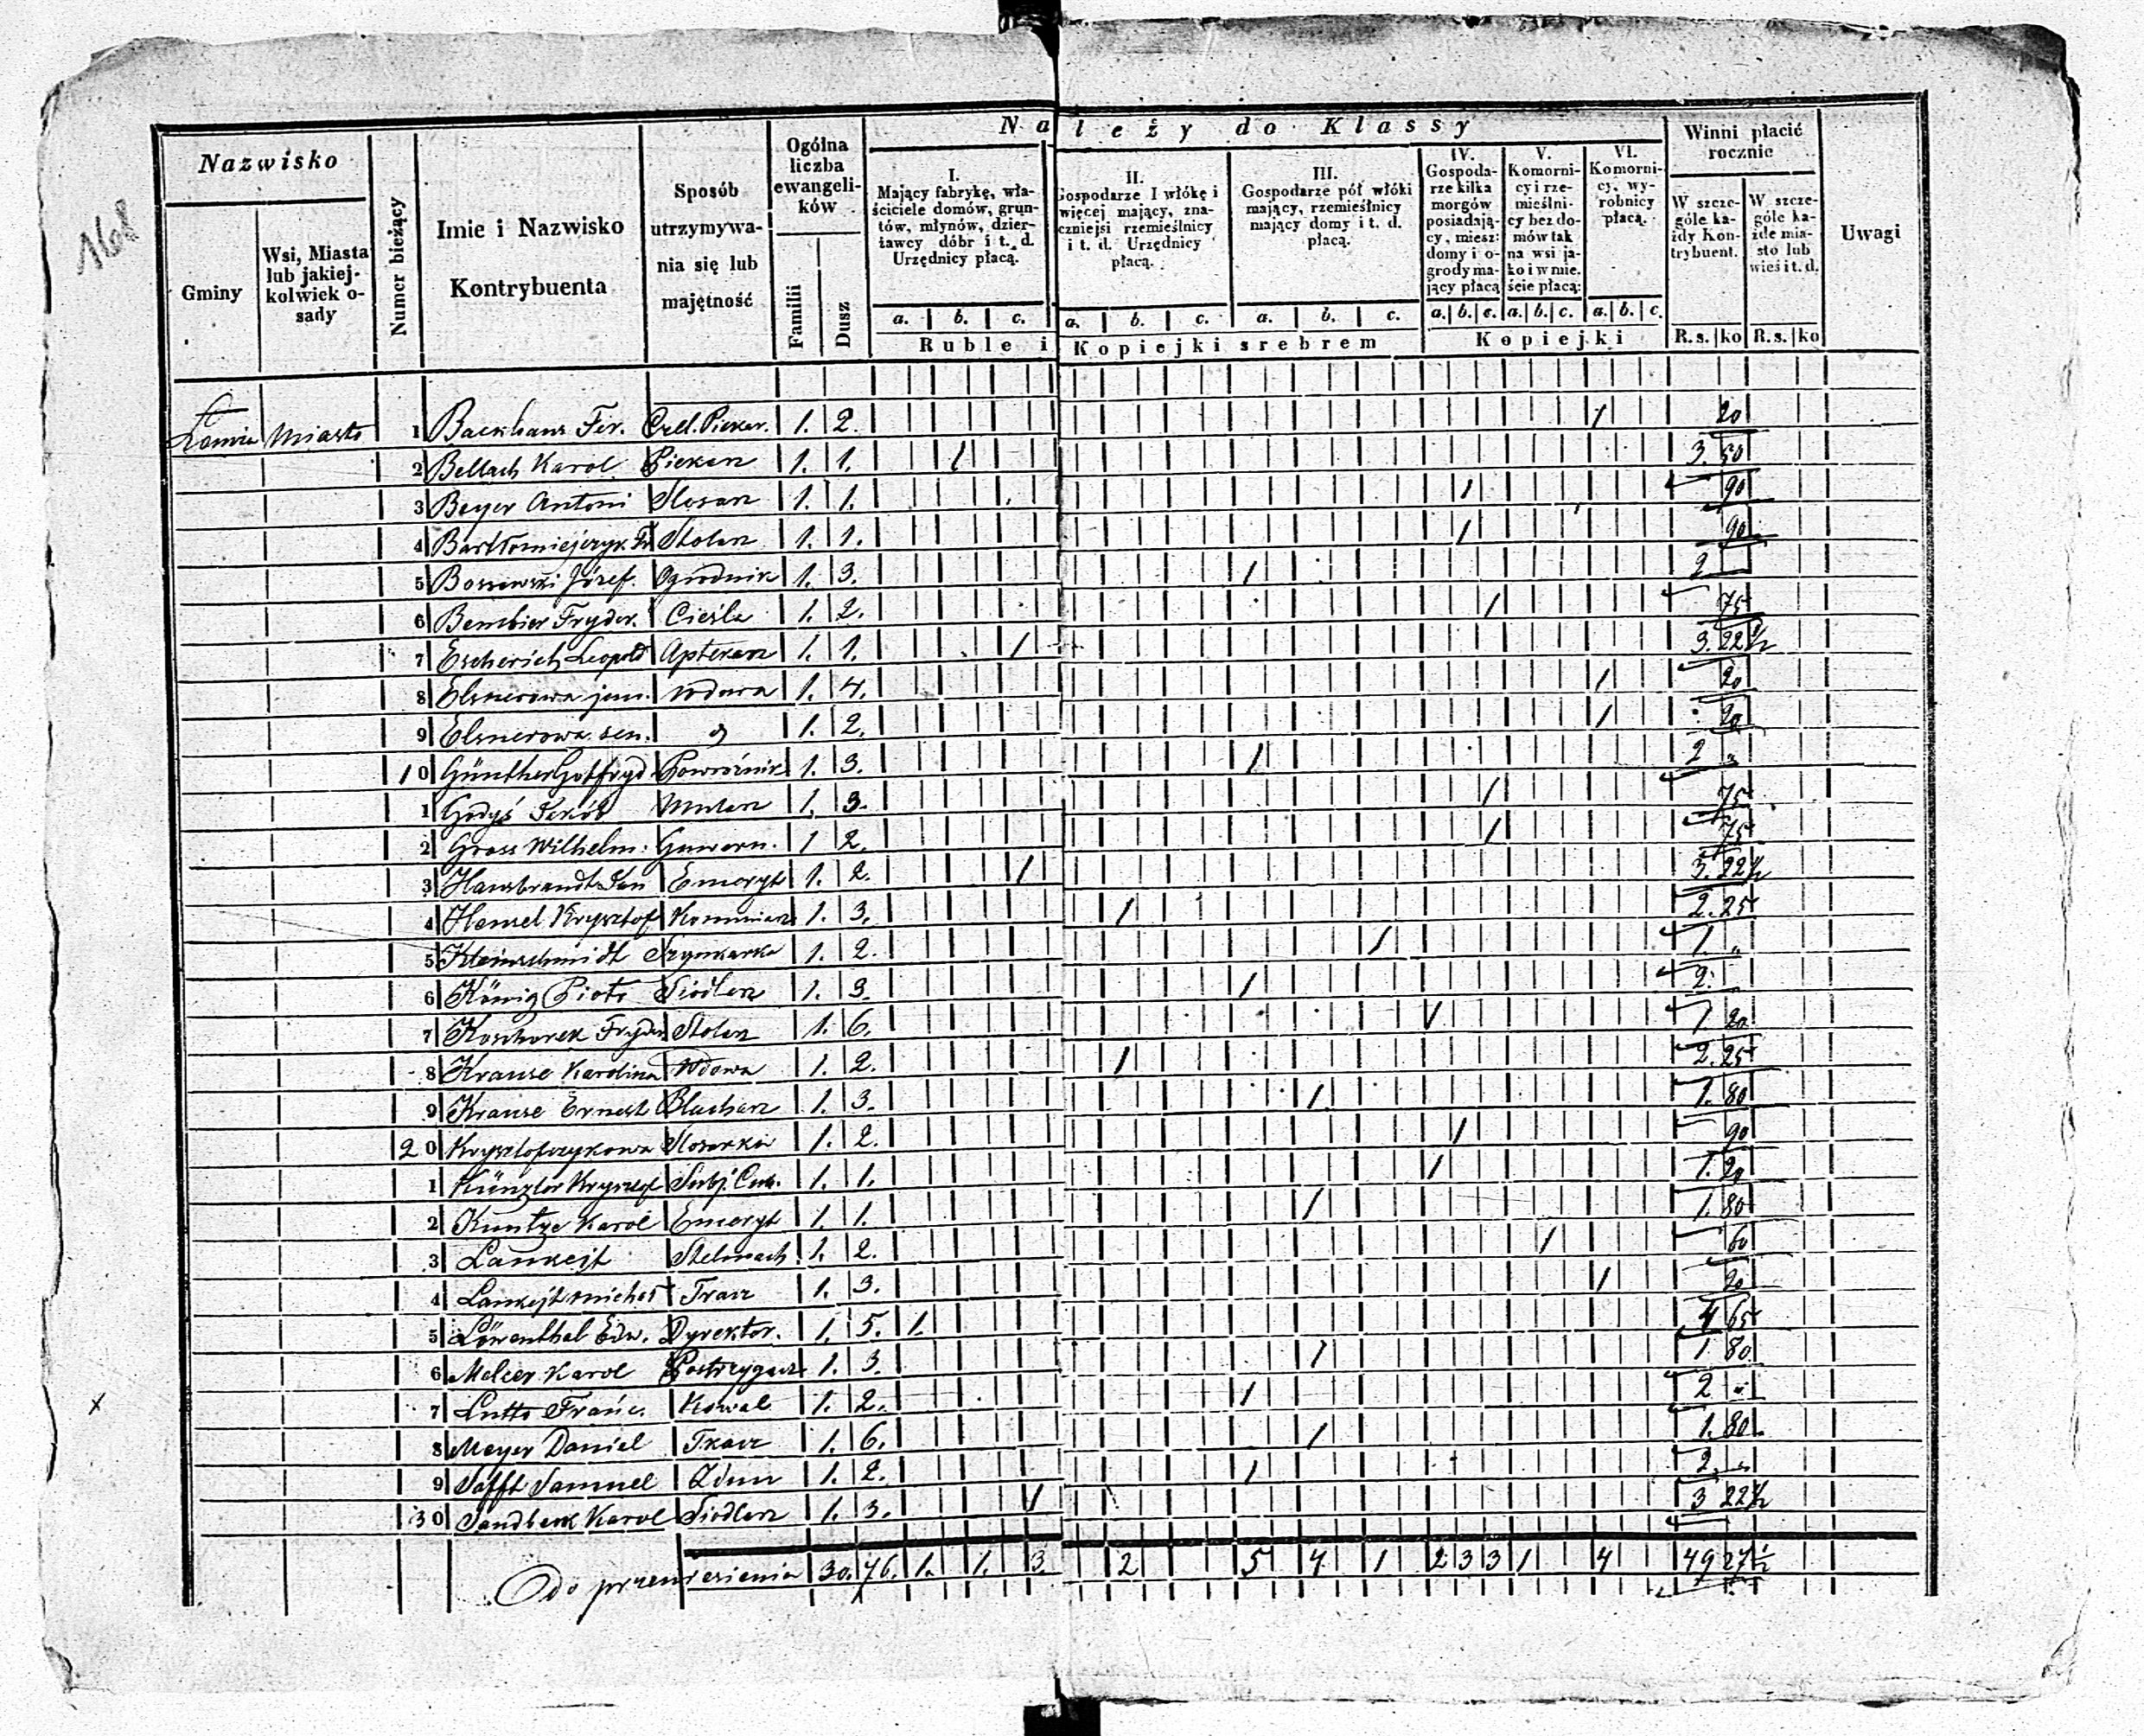 168
Nazwisko
Gminy
Wsi, Miasta lub jakiej-kolwiek o-sady
Numer bieżący
Imie i Nazwisko Kontrybuenta
Sposób utrzymywa-nia się lub majętność
Ogólna liczba ewangeli-ków
Familii
Dusz
Należy do Klassy
I. Mający fabrykę, wła-ściciele domów, grun-tów, młynów, dzier-żawcy dóbr i t. d. Urzędnicy płacą.
II. Gospodarze I włókę i więcej mający, zna-czniejsi rzemieślnicy i t. d. Urzędnicy płacą.
III. Gospodarze pół włóki mający, rzemieślnicy mający domy i t. d. płacą.
IV. Gospoda-rze kilka morgów posiadają-cy, miesz: domy i o-grody ma-jący płacą
V. Komorni-cy i rze-mieślni-cy bez do-mów tak na wsi ja-ko i w mie. ście płacą:
VI. Komorni-cy, wy-robnicy płacą.
Winni płacić rocznie
W szcze-góle ka-żdy Kon-trybuent.
W szcze-góle ka-żde mia-sto lub wieś i t. d.
Uwagi
a. b. c. a. b. c. a. b. c. a. b. c. a. b. c. a. b. c.
Ruble i Kopiejki srebrem Kopiejki R.s. ko R.s. ko
Łomża Miasto 1 Backhaus Fer. Czel. Piekar. 1. 2. 1 20
2 Bellach Karol Piekarz 1. 1. 1 3. 50
3 Beyer Antoni Slosarz 1. 1. 1 90
4 Bartłomiejczyk Fr Stolarz 1. 1. 1 90
5 Bossowski Józef. Ogrodnik 1. 3. 1 2
6 Bembier Fryder. Cieśla 1. 2. 1 75
7 Escherich Leopold Aptekarz 1. 1. 1 3. 22 1/2
8 Elsnerowa jun. Wdowa 1. 4. 1 20
9 Elsnerowa sen. 1. 2. 1 20
10 Günther Gotfryd Powroźnik 1. 3. 1 2 "
1 Godyś Jakób Mularz 1. 3. 1 75
2 Gross Wilhelm. Guwern. 1 2. 1 75
3 Hansbrandt Jan Emeryt 1. 2. 1 3. 22 1/2
4 Hensel Krysztof Kominiarz 1. 3. 1 2. 25
5 Kleinschmidt Szynkarka 1. 2. 1 1. "
6 König Piotr Siodlarz 1. 3. 1 2.
7 Koschorek Fryder Stolarz 1. 6. 1 1 20
8 Krause Karolina Wdowa 1. 2. 1 2. 25
9 Krause Ernest Blacharz 1. 3. 1 1. 80
20 Krysztofczykowa Slosarka 1. 2. 1 90
1 Künzler Kryszof Subj. Cuk. 1. 1. 1 1. 20
2 Kuntze Karol Emeryt 1. 1. 1 1. 80
3 Lankejt Stelmach 1. 2. 1 60
4 Lankejt Michał Tracz 1. 3. 1 20
5 Löwenthal Edw. Dyrektor. 1. 5. 1. 4 65
6 Melcer Karol Postrzygacz 1. 3. 1 1 80
7 Lutto Franc. Kowal 1. 2. 1 2 "
8 Meyer Daniel Tkacz 1. 6. 1 1. 80
9 Safft Samuel Zdun 1. 2. 1 2. "
30 Sandberk Karol Siodlarz 1. 3. 1 3 22 1/2
Do przeniesienia 30. 76. 1. 1. 3. 2 5 4 1 2 3 3 1 4 49 27 1/2